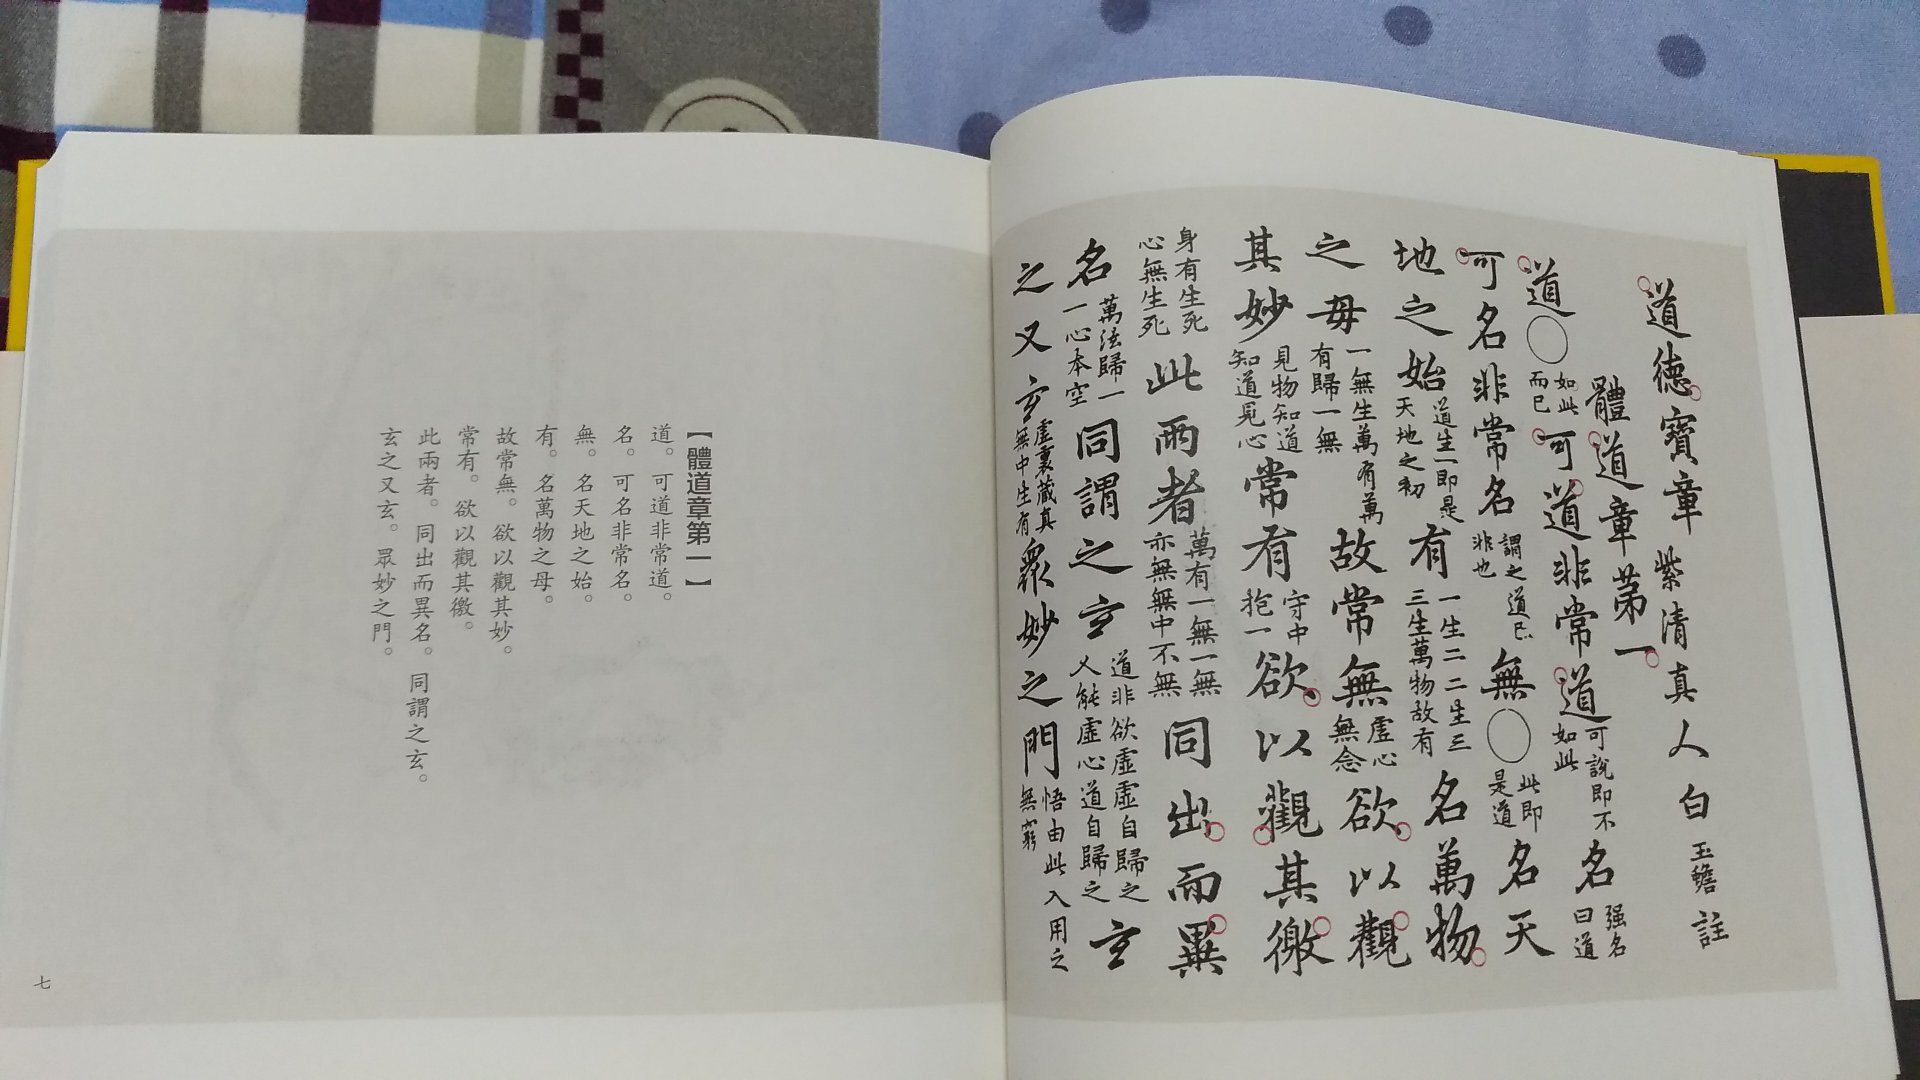 道德寶章 紫清真人白玉蟾註
體道章第一
道○如此而已可道非常道可說即不如此名强名曰道
可名非常名謂之道已非也無○此即是道名天
地之始道生一即是天地之初有一生二二生三三生萬物故有名萬物
之母一無生萬有萬有歸一無故常無虛心無念欲以觀
其妙見物知道知道見心常有守中抱一欲以觀其徼
身有生死心無生死此兩者萬有一無一無亦無無中不無同出而異
名萬法歸一一心本空同謂之玄道非欲虛虛自歸之人能虛心道自歸之玄
之又玄虛裏藏真無中生有眾妙之門悟由此入用之無窮
【體道章第一】
道。可道非常道。
名。可名非常名。
無。名天地之始。
有。名萬物之母。
故常無。欲以觀其妙。
常有。欲以觀其徼。
此兩者。同出而異名。同謂之玄。
玄之又玄。眾妙之門。
七